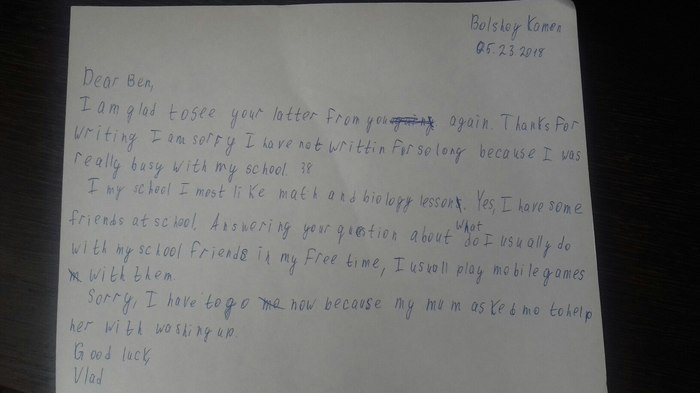 Bolshoy Kamen
05.23.2018
Dear Ben,
I am glad to see your latter from you again. Thanks for
writing I am sorry I have not writtin for so long because I was
really busy with my school. 38
I my school I most like math and biology lesson. Yes, I have some
friends at school. Answering your question about what do I usually do
with my school friends in my free time, I usuall play mobile games
with them
Sorry, I have to go now because my mum asked me to help
her with washing up.
Good luck,
Vlad